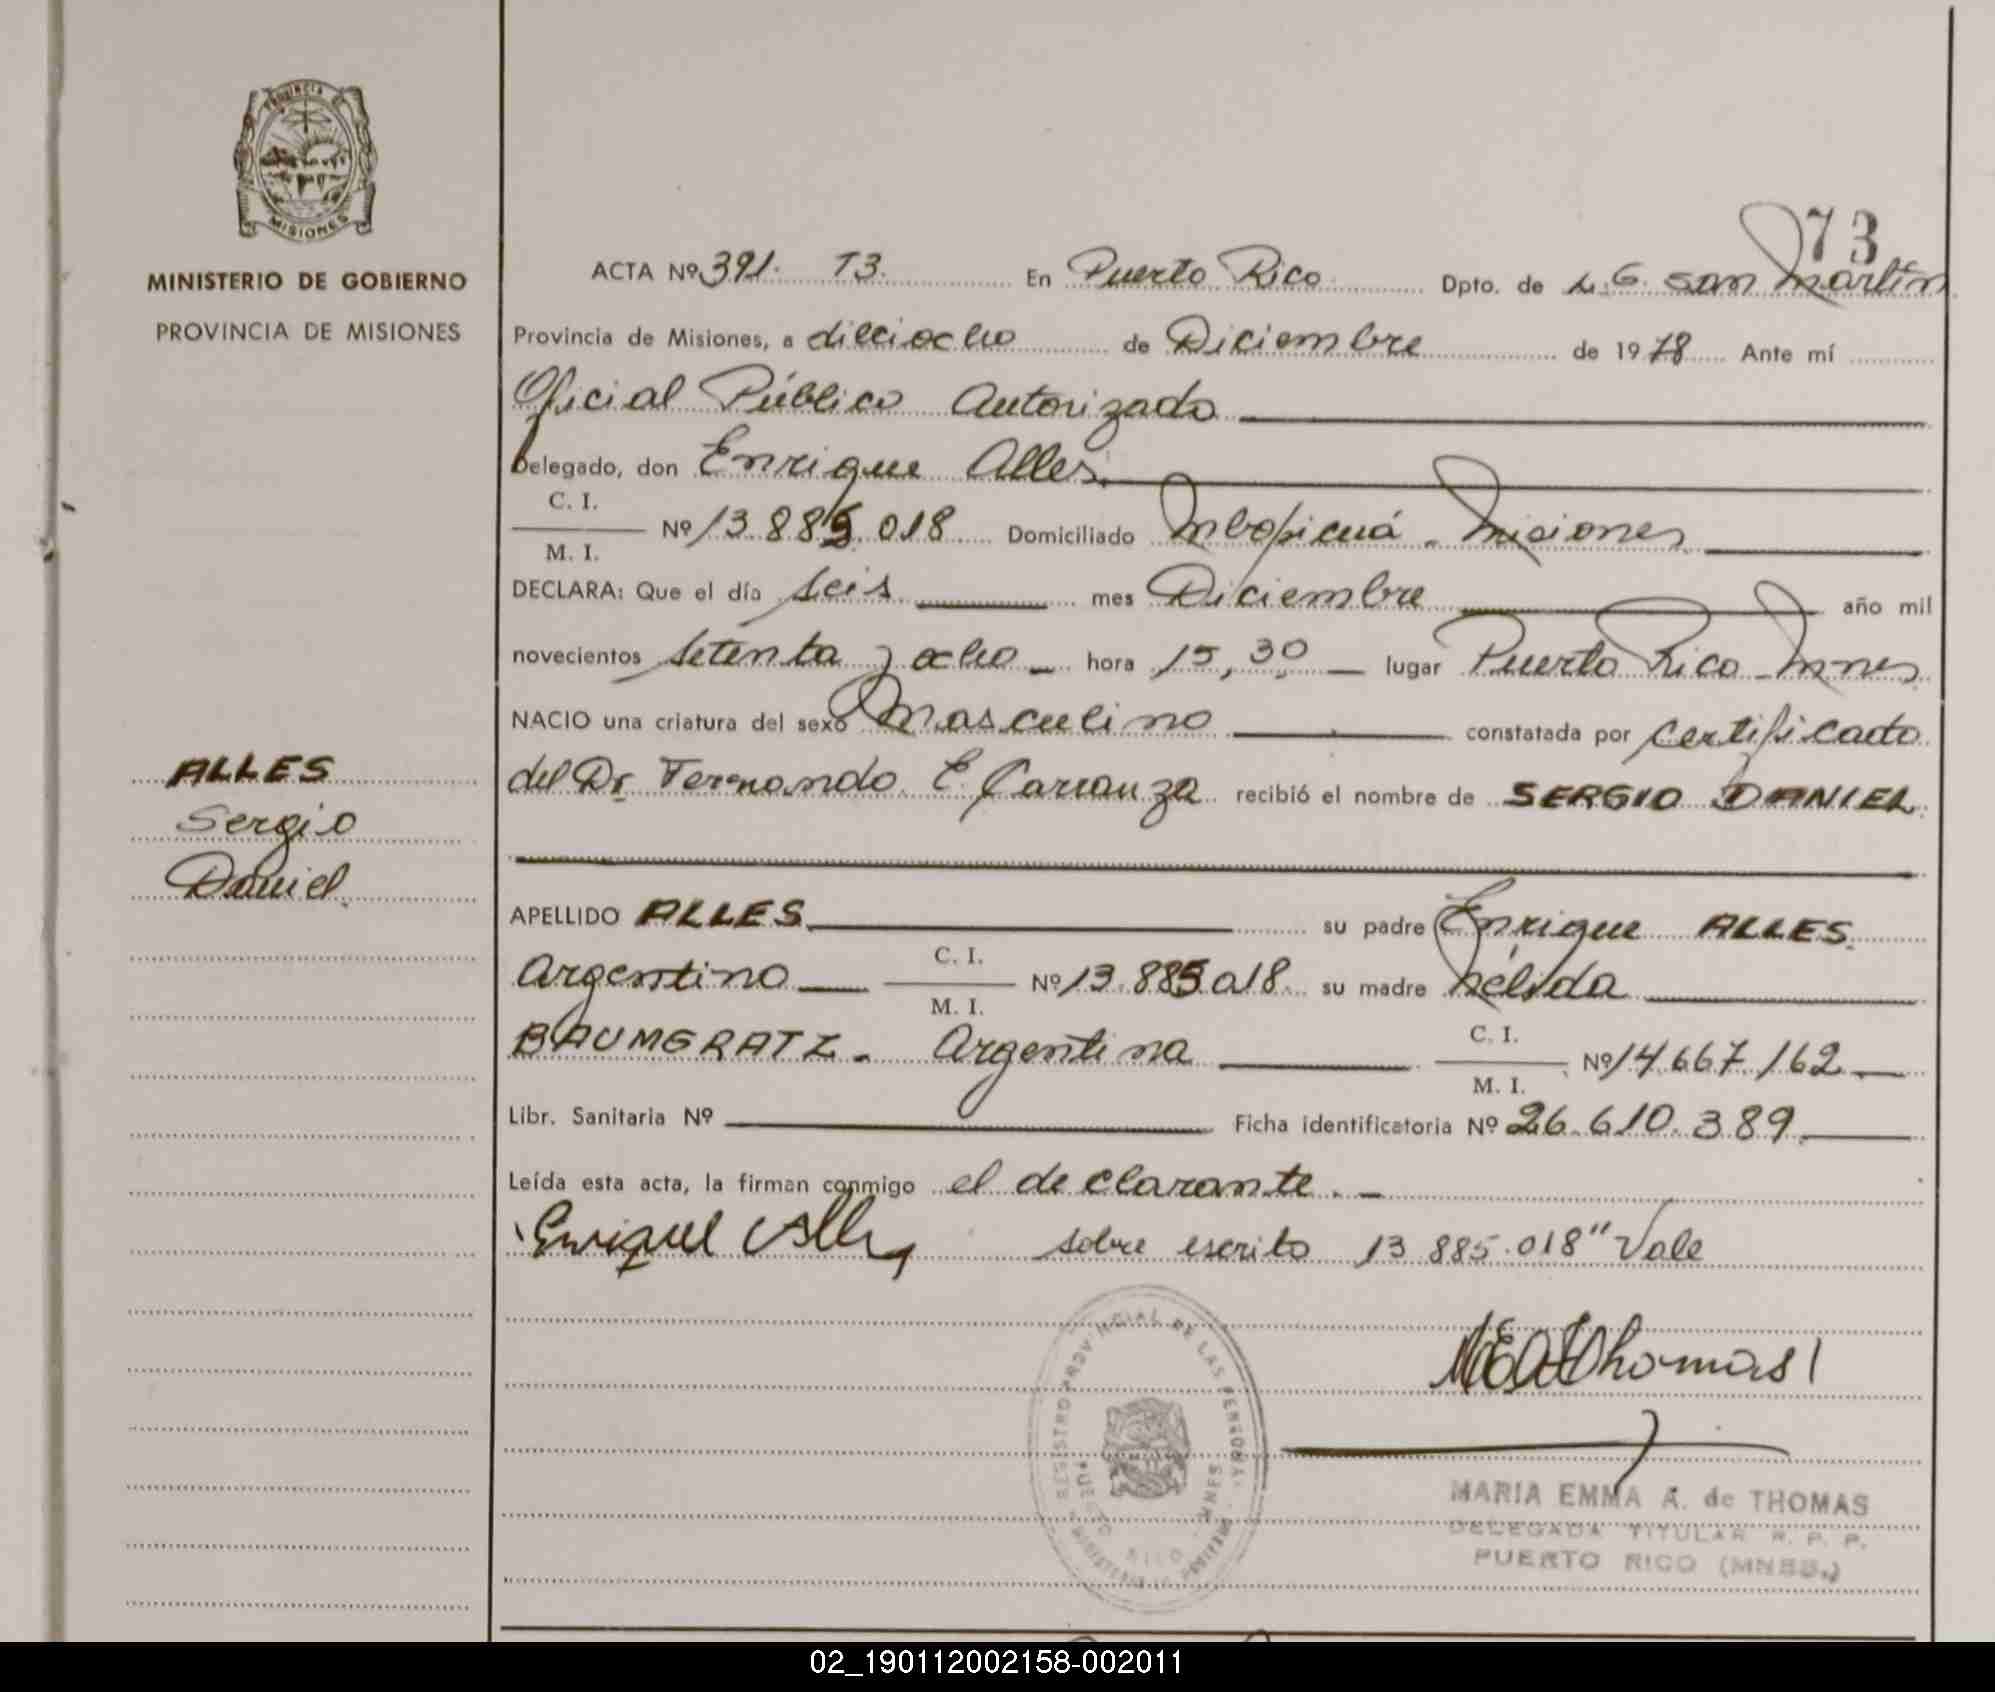 73
PROVINCIA DE
MISIONES
MINISTERIO DE GOBIERNO
PROVINCIA DE MISIONES
ALLES
Sergio
Daniel.
ACTA Nº 391. T3. En Puerto Rico Dpto. de L. G. San Martín
Provincia de Misiones, a dieciocho de Diciembre de 1978 Ante mí
Oficial Público Autorizado
Delegado, don Enrique Alles.
C. I.
M. I. Nº 13.885.018 Domiciliado Mbopicuá - Misiones
DECLARA: Que el día seis mes Diciembre año mil
novecientos setenta y ocho hora 15,30 lugar Puerto Rico - Mnes
NACIO una criatura del sexo Masculino constatada por certificado
del Dr. Fernando E. Carranza recibió el nombre de SERGIO DANIEL
APELLIDO ALLES su padre Enrique ALLES.
Argentino C. I. M. I. Nº 13.885018 su madre Nélida
BAUMGRATZ - Argentina C. I. M. I. Nº 14.667.162
Libr. Sanitaria Nº Ficha identificatoria Nº 26.610.389
Leída esta acta, la firman conmigo el declarante. -
Enrique Alles sobre escrito 13 885.018" Vale
MEAThomas
REGISTRO PROVINCIAL DE LAS PERSONAS
PUERTO RICO MNES
MARIA EMMA A. de THOMAS
DELEGADA TITULAR R. P. P.
PUERTO RICO (MNES.)
02_190112002158-002011